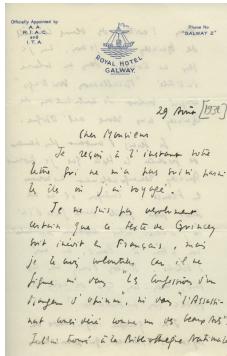 Officially Appointed by
A.A.
R.I.A.C.
and
I.T.A.
Phone No
"GALWAY 2"
ROYAL HOTEL
GALWAY.
29 Août [193
Cher Monsieur
Je reçois à l'instant votre
lettre qui ne m'a pas suivi parmi
les îles où j'ai voyagé.
Je ne suis pas absolument
certain que ce texte de Quincey
soit inédit en Français, mais
je le crois volontiers car il ne
figure ni dans "Les Confessions d'un
mangeur d'opium", ni dans "l'Assassi-
nat considéré comme un des beaux Arts"
à la Bibliothèque Nationale